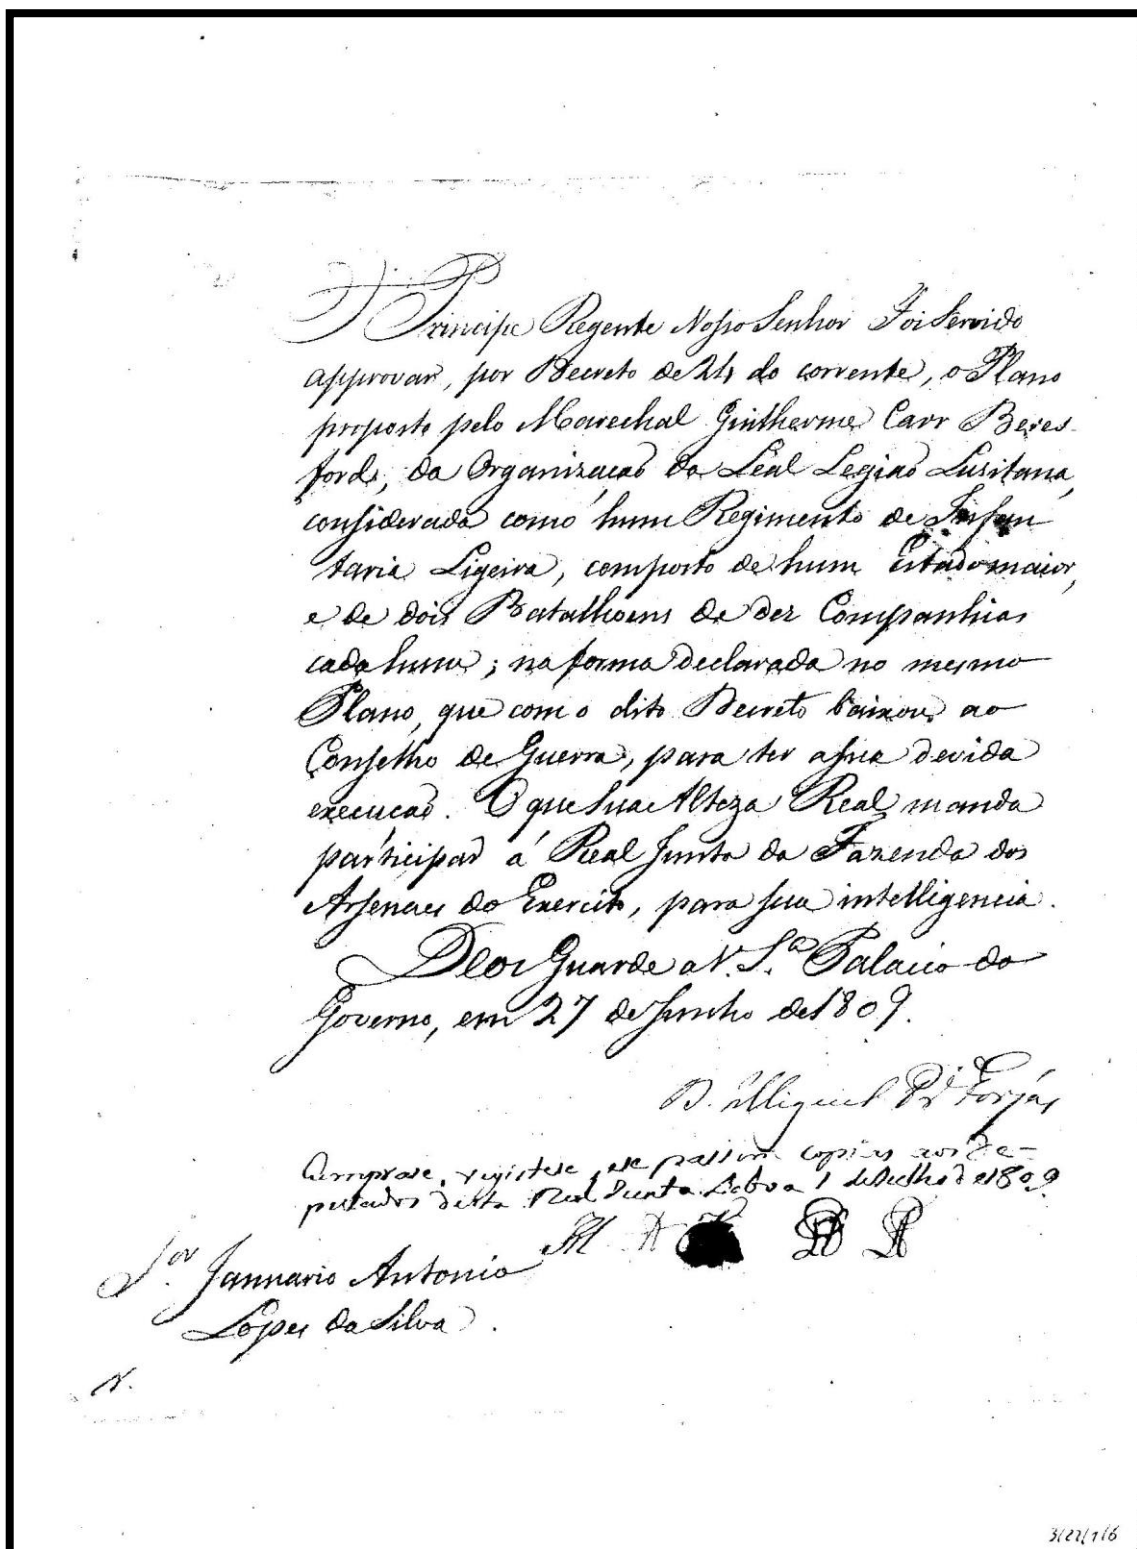 O Principe Regente Nosso Senhor Foi Servido
approvar, por Decreto de 24 do corrente, o Plano
proposto pelo Marechal Guilherme Carr Beres-
ford, da Organizacaõ da Leal Legiaõ Lusitana,
considerada como hum Regimento de Infan
taria Ligeira, composto de hum Estado maior,
e de dois Batalhoens de dez Companhias
cada hum; na forma declarada no mesmo
Plano, que com o dito Decreto baixou ao
Conselho de Guerra, para ter a sua devida
execuçaõ. O que Sua Alteza Real manda
participar á Real Junta da Fazenda dos
Arsenaes do Exercito, para sua intelligencia.
Deos Guarde a V. S.ª Palacio do
Governo, em 27 de Junho de 1809.
D. Miguel Pr.ª Forjás
Cumprase, registese, e se passem copias aos De-
putados desta Real Junta Lisboa 1 de Julho de 1809
S.or Jannario Antonio
Lopes da Silva.
N.
3/22/1/6